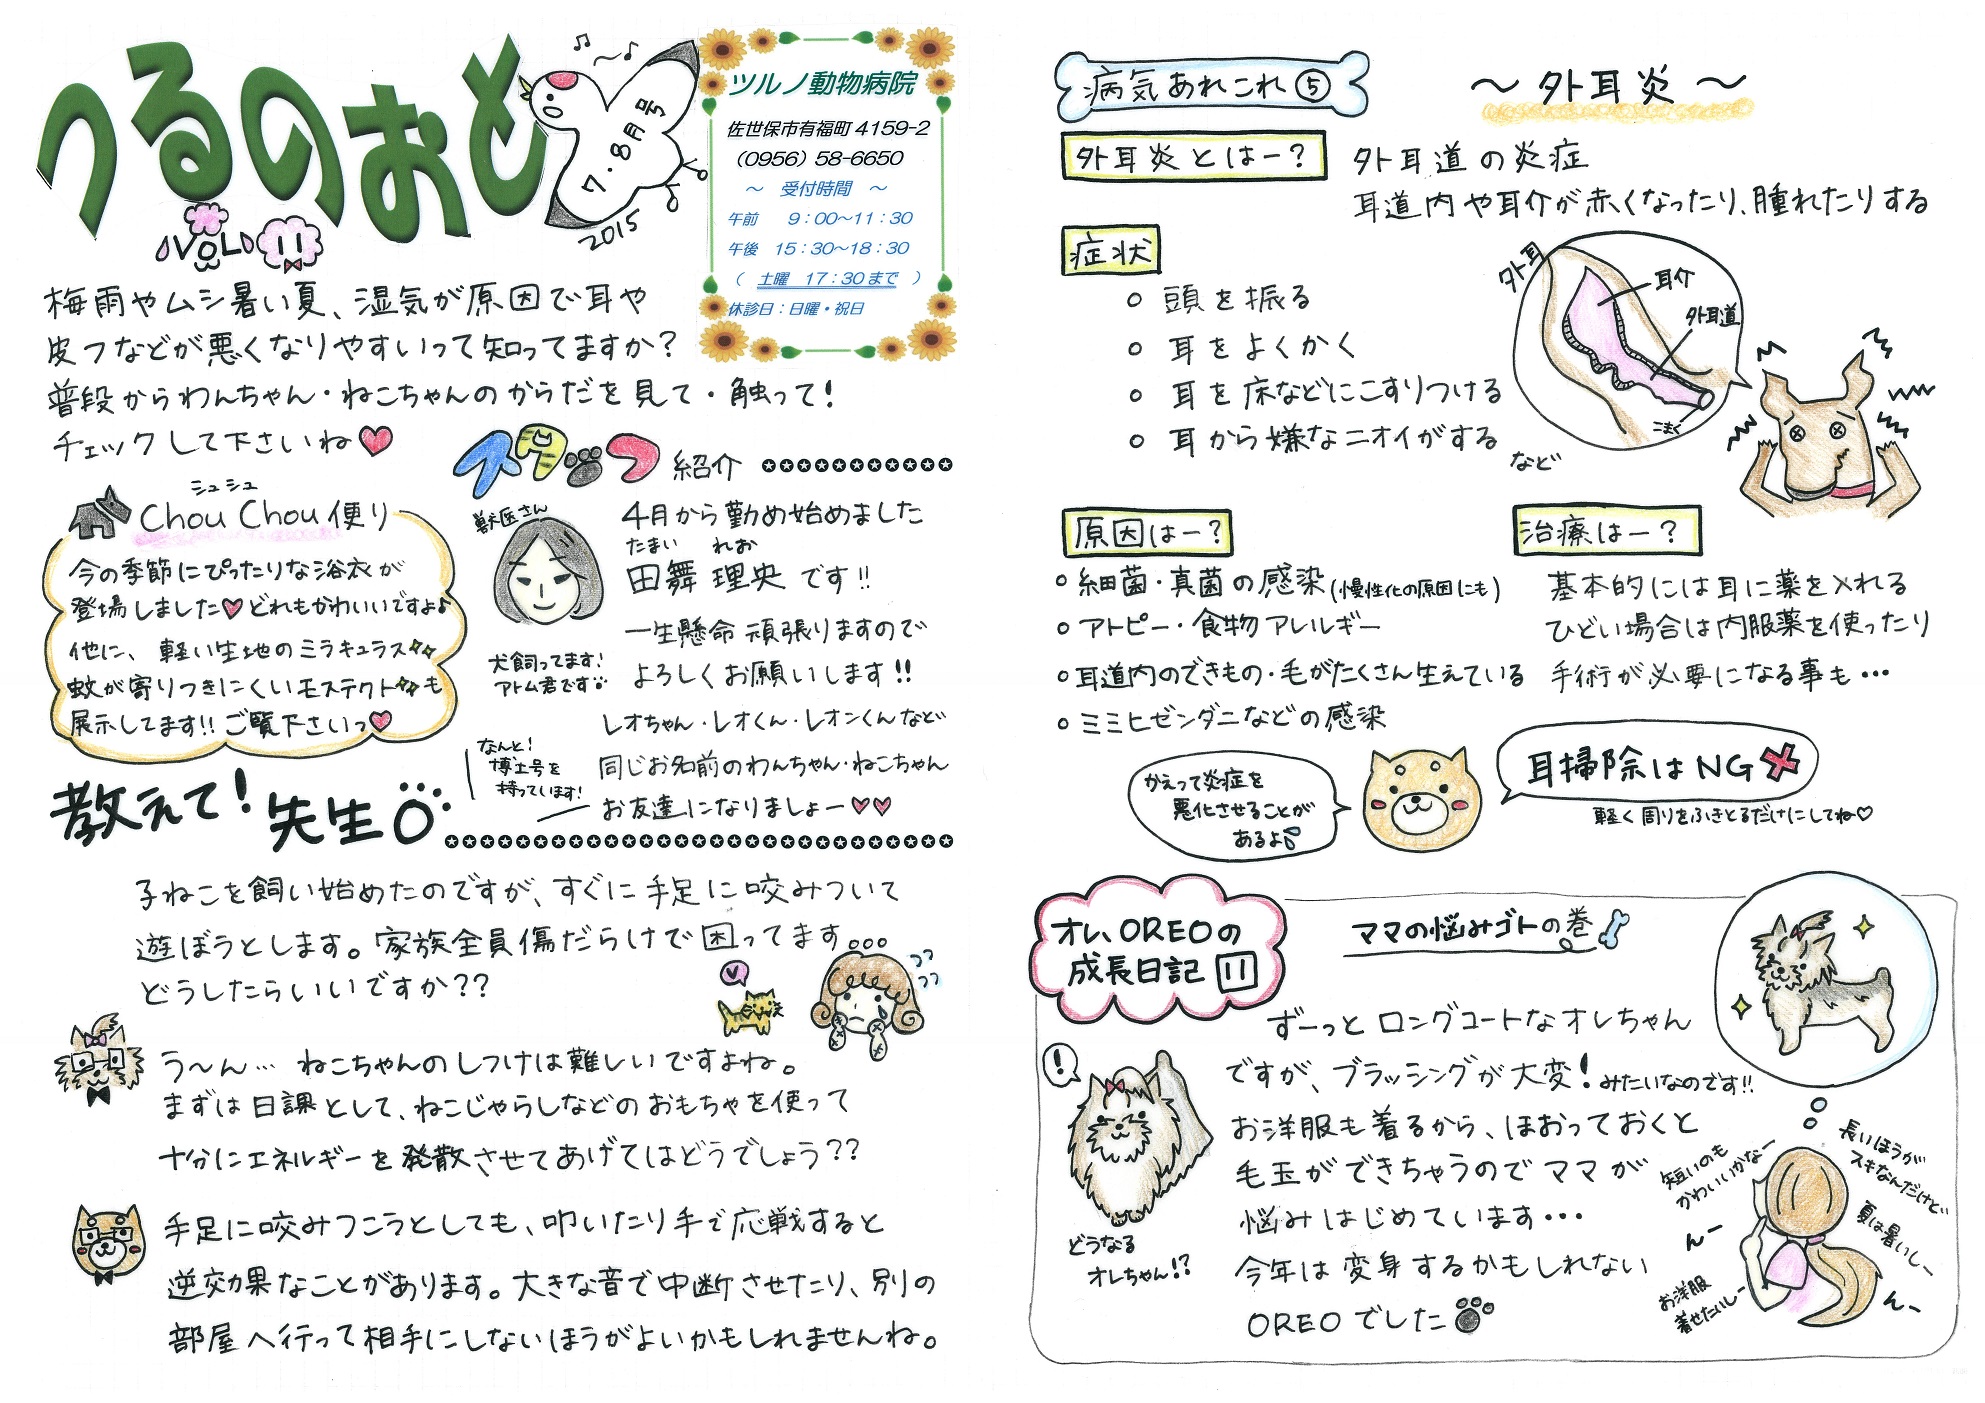 つるのおと
VOL 11
7・8月号
2015
ツルノ動物病院
佐世保市有福町4159-2
（0956）58-6650
～ 受付時間 ～
午前 9：00～11：30
午後 15：30～18：30
（ 土曜 17：30まで ）
休診日：日曜・祝日
梅雨やムシ暑い夏、湿気が原因で耳や
皮フなどが悪くなりやすいって知ってますか？
普段からわんちゃん・ねこちゃんのからだを見て・触って！
チェックして下さいね♥
シュシュ
Chou Chou 便り
今の季節にぴったりな浴衣が
登場しました♥どれもかわいいですよ♪
他に、軽い生地のミラキュラス
蚊が寄りつきにくいモステクトも
展示してます!!ご覧下さいっ♥
スタッフ紹介
獣医さん
犬飼ってます！
アトム君です
4月から勤め始めました
たまい れお
田舞 理央 です!!
一生懸命 頑張りますので
よろしくお願いします!!
なんと！
博士号を
持っています！
レオちゃん・レオくん・レオンくんなど
同じお名前のわんちゃん・ねこちゃん
お友達になりましょー♥♥
教えて！先生
子ねこを飼い始めたのですが、すぐに手足に咬みついて
遊ぼうとします。家族全員傷だらけで困ってます...
どうしたらいいですか？？
う～ん… ねこちゃんのしつけは難しいですよね。
まずは日課として、ねこじゃらしなどのおもちゃを使って
十分にエネルギーを発散させてあげてはどうでしょう？？
手足に咬みつこうとしても、叩いたり手で応戦すると
逆効果なことがあります。大きな音で中断させたり、別の
部屋へ行って相手にしないほうがよいかもしれませんね。
病気あれこれ⑤
～ 外耳炎 ～
外耳炎とはー？
外耳道の炎症
耳道内や耳介が赤くなったり、腫れたりする
症状
○ 頭を振る
○ 耳をよくかく
○ 耳を床などにこすりつける
○ 耳から嫌なニオイがする
など
外耳
耳介
外耳道
こまく
原因はー？
○ 細菌・真菌の感染（慢性化の原因にも）
○ アトピー・食物アレルギー
○ 耳道内のできもの・毛がたくさん生えている
○ ミミヒゼンダニなどの感染
治療はー？
基本的には耳に薬を入れる
ひどい場合は内服薬を使ったり
手術が必要になる事も…
かえって炎症を
悪化させることが
あるよ
耳掃除はNG
軽く周りをふきとるだけにしてね♡
オレ、OREOの
成長日記 11
ママの悩みゴトの巻
ずーっとロングコートなオレちゃん
ですが、ブラッシングが大変！みたいなのです!!
お洋服も着るから、ほおっておくと
毛玉ができちゃうのでママが
悩みはじめています…
今年は変身するかもしれない
OREOでした
!
どうなる
オレちゃん!?
長いほうが
スキなんだけど…
短いのも
かわいいかなー
夏は暑いしー
んー
お洋服
着せたいしー
んー